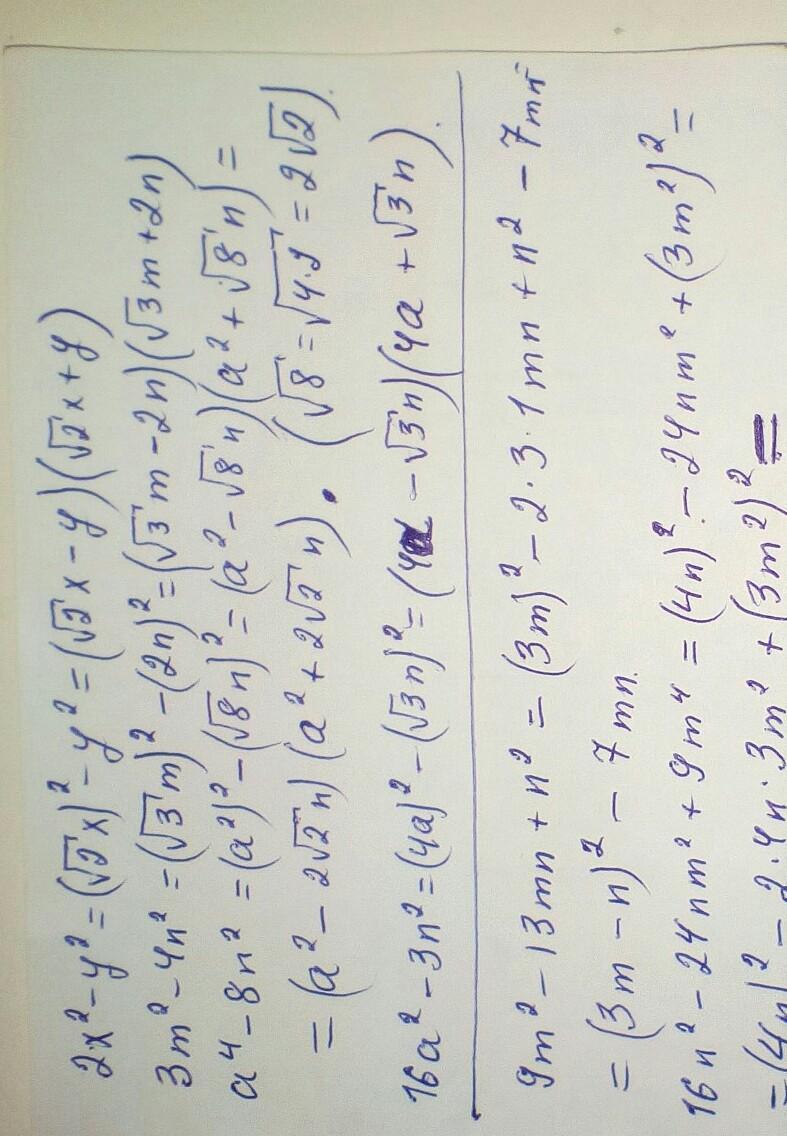 2x² - y² = (√2 x)² - y² = (√2 x - y)(√2 x + y)
3m² - 4n² = (√3 m)² - (2n)² = (√3 m - 2n)(√3 m + 2n)
a⁴ - 8n² = (a²)² - (√8 n)² = (a² - √8 n)(a² + √8 n) =
= (a² - 2√2 n)(a² + 2√2 n). (√8 = √4·2 = 2√2).
16a² - 3n² = (4a)² - (√3 n)² = (4a - √3 n)(4a + √3 n).
9m² - 13mn + n² = (3m)² - 2·3·1mn + n² - 7mn
= (3m - n)² - 7mn.
16n² - 24nm² + 9m⁴ = (4n)² - 24nm² + (3m²)² =
= (4n)² - 2·4n·3m² + (3m²)² =